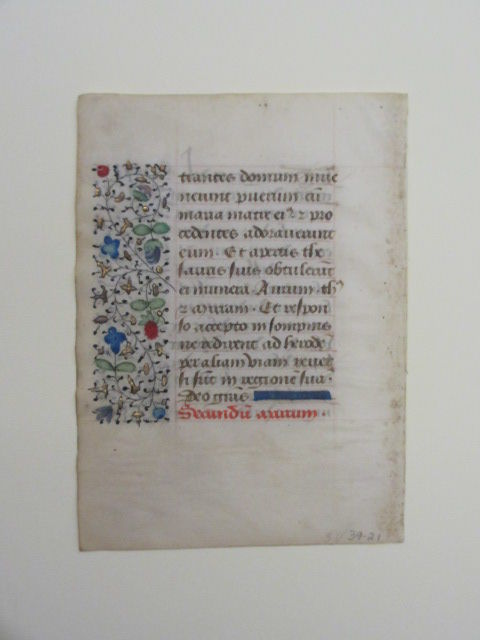 trantes domum inue
nerunt puerum cū
maria matre ei⁹ ⁊ pro
cedentes adorauerunt
eum · Et apertis the
sauris suis obtulerūt
ei munera · Aurum · th⁹
⁊ mirram · Et respon
so accepto in sompnis
ne redirent ad herodē
per aliam viam reuer
si sūt in regionē suā ·
Deo grās
Secundū marcum
39-21